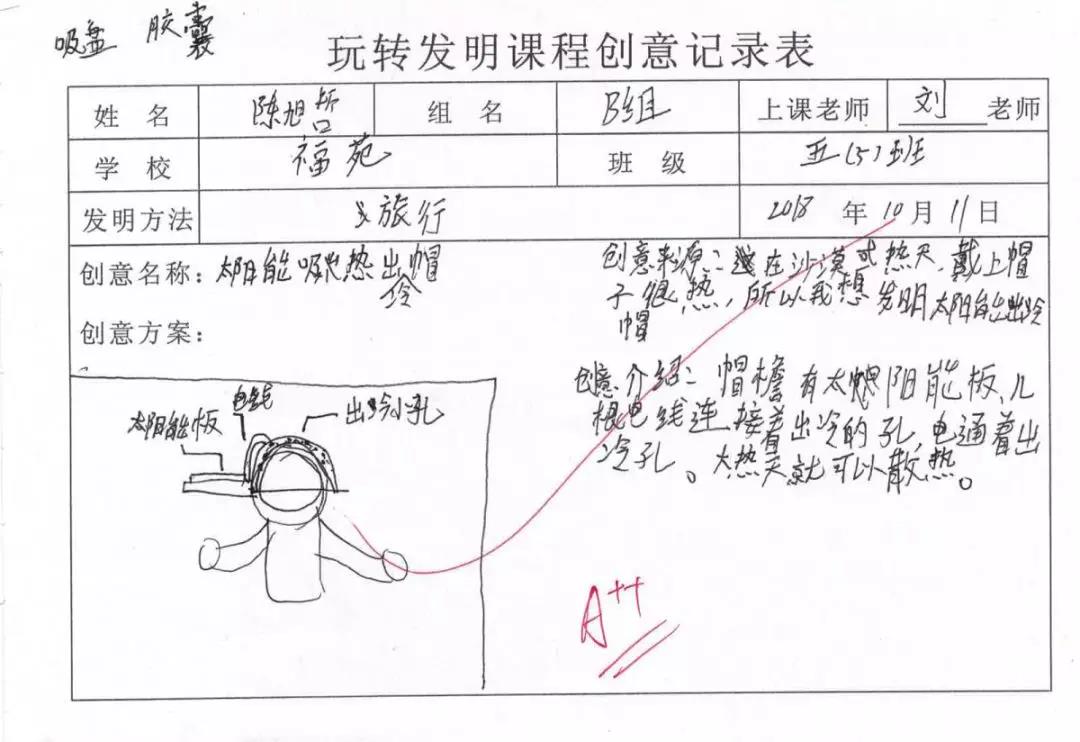 吸盘 胶囊
玩转发明课程创意记录表
姓 名 陈旭哲 组 名 B组 上课老师 刘 老师
学 校 福苑 班 级 五(5)班
发明方法 旅行 2018 年 10 月 11 日
创意名称：太阳能吸热出冷帽
创意方案：
创意来源：在沙漠或热天，戴上帽
子很热，所以我想发明太阳能出冷
帽
创意介绍：帽檐有太阳能板，几
根电线连接着出冷的孔，电通着出
冷孔。大热天就可以散热。
电线
太阳能板
出冷小孔
A++